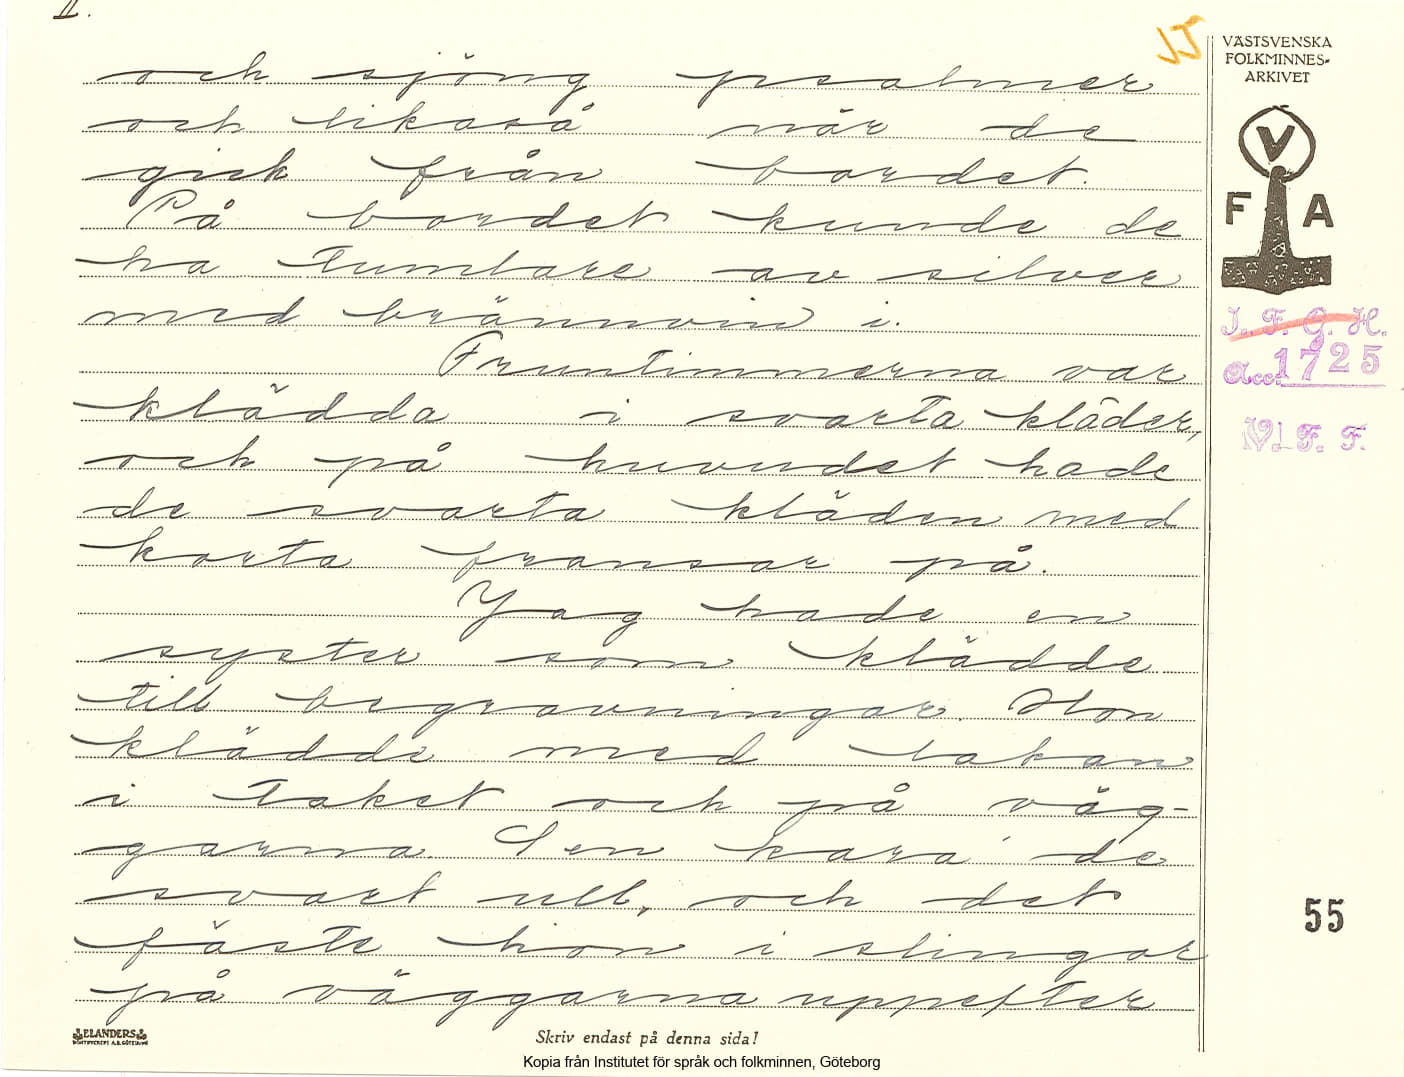 II.
55
VÄSTSVENSKA
FOLKMINNES-
ARKIVET
V
F A
I. F. G. H.
Acc. 1725
V. F. F.
och sjöng psalmer
och likaså när de
gick från bordet.
På bordet kunde de
ha tumlare av silver
med brännvin i.
Fruntimmerna var
klädda i svarta kläder,
och på huvudet hade
de svarta kläden med
korta fransar på.
Jag hade en
syster som klädde
till begravningar. Hon
klädde med lakan
i taket och på väg-
garna. Sen karda de
svart ull, och det
fäste hon i slingor
på väggarna uppefter
55
ELANDERS
Skriv endast på denna sida!
Kopia från Institutet för språk och folkminnen, Göteborg